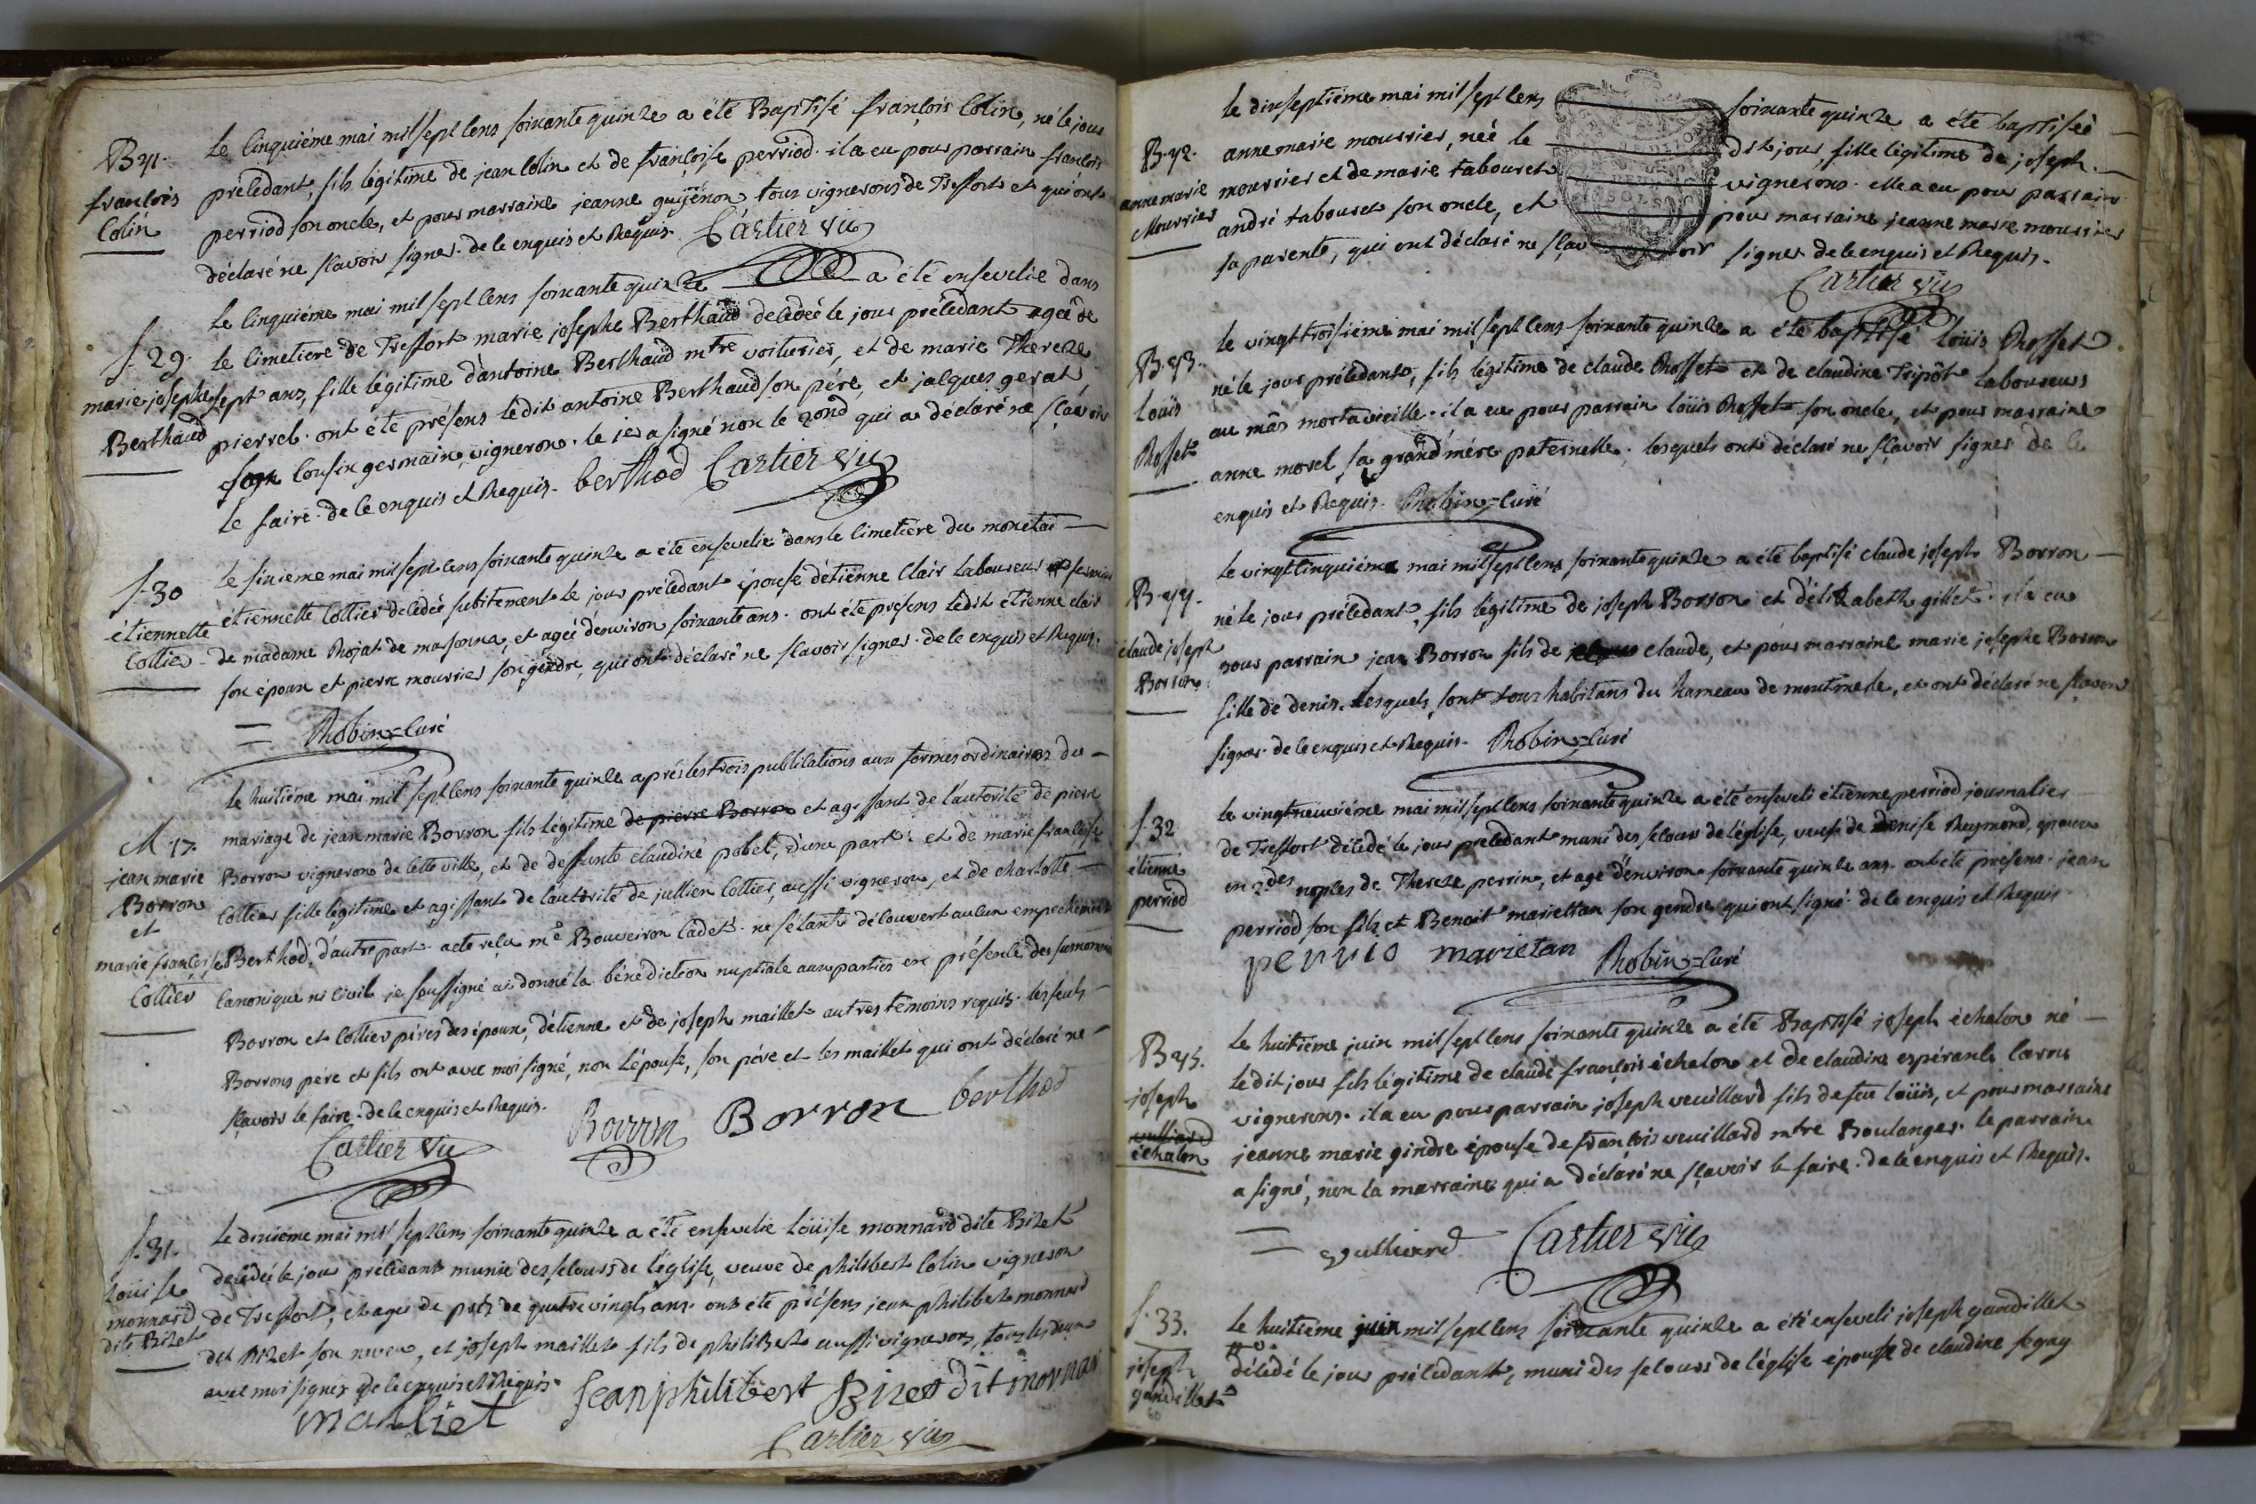 B 41.
françois
Colin
Le cinquiéme mai mil sept cens soixante quinze a été Baptisé françois Colin, né le jour
précédant, fils légitime de jean Colin et de françoise perriod. il a eu pour parrain françois
perriod son oncle, et pour marraine jeanne guyénon tous vignerons de Treffort et qui ont
déclaré ne sçavoir signer. de ce enquis et Requis. Cartier vic
S. 29.
marie josephe
Berthaud
Le cinquiéme mai mil sept cens soixante quinze a été ensevelie dans
le cimetiere de Treffort marie josephe Berthaud décédée le jour précédant agée de
sept ans, fille légitime d'antoine Berthaud mtre voiturier, et de marie Thereze
pierrel. ont été présens ledit antoine Berthaud son pére, et jacques gerat,
son cousin germain, vigneron. le 1er a signé non le 2ond qui a déclaré ne sçavoir
le faire. de ce enquis et Requis. berthod Cartier vic
S. 30
étiennette
Collier
Le sixieme mai mil sept cens soixante quinze a été ensevelie dans le cimetiére du monetai
étiennette Collier décédée subitement le jour précédant épouse d'étienne Clair Laboureur
de madame Rojat de masonna, et agée d'environ soixante ans. ont été présens ledit étienne clair
son époux et pierre mourrier son gendre, qui ont déclaré ne sçavoir signer. de ce enquis et Requis.
= Robin=Curé
M 17.
jean marie
Borron
et
marie françoise
Collier
Le huitiéme mai mil sept cens soixante quinze aprés les trois publications aux formes ordinaires du
mariage de jean marie Borron fils légitime de pierre Borron et agissant de l'autorité de pierre
Borron vigneron de cette ville, et de deffunte claudine pobel, d'une part: et de marie françoise
Collier fille légitime et agissant de l'autorité de jullien Collier, aussi vigneron, et de charlotte
Berthod, d'autre part. acte reçu me Bouveiron Cadet. ne s'étant découvert aucun empechement
canonique ni civil je soussigné ai donné la bénédiction nuptiale aux parties en présence des surnommés
Borron et Collier péres des époux, d'étienne et de joseph maillet autres témoins requis. les seuls
Borrons pére et fils ont avec moi signé, non l'épouse, son pére et les maillet qui ont déclaré ne
sçavoir le faire. de ce enquis et Requis.
Cartier vic Borron Borron berthod
S. 31.
Loüise
monnard
dite Bizet
Le dixiéme mai mil sept cens soixante quinze a été ensevelie Loüise monnard dite Bizet
décédée le jour précédant munie des secours de l'église, veuve de philibert Colin vigneron
de Treffort, et agée de prés de quatre vingts ans. ont été présens jean philibert monnard
dit Bizet son neveu, et joseph maillet fils de philibert aussi vignerons, tous les deux
avec moi signés de ce enquis et Requis.
mailliet jean philibert Bizet dit monnar
Cartier vic
B. 42.
anne marie
Mourrier
le dixseptiéme mai mil sept cens soixante quinze a été baptisée
anne marie mourrier, née le dit jour, fille légitime de joseph
mourrier et de marie tabouret vignerons. elle a eu pour parrain
andré tabouret son oncle, et pour marraine jeanne marie mourrier
sa parente, qui ont déclaré ne sçavoir signer de ce enquis et Requis.
Cartier vic
B. 43.
Loüis
Rosset
Le vingt troisiéme mai mil sept cens soixante quinze a été baptisé Loüis Rosset
né le jour précédant, fils légitime de claude Rosset et de claudine Tripôt Laboureurs
au mâs mortavieille. il a eu pour parrain Loüis Rosset son oncle, et pour marraine
anne morel sa grand'mére paternelle. lesquels ont déclaré ne sçavoir signer de ce
enquis et Requis. Robin=Curé
B. 44.
claude joseph
Borron
Le vingt cinquiéme mai mil sept cens soixante quinze a été baptisé claude joseph Borron
né le jour précédant, fils légitime de joseph Borron et d'élizabeth gillet. il a eu
pour parrain jean Borron fils de claude, et pour marraine marie josephe Borron
fille de denis. Lesquels sont tous habitans du hameau de montmerle, et ont déclaré ne sçavoir
signer. de ce enquis et Requis. Robin=Curé
S. 32
étienne
perriod
Le vingtneuviéme mai mil sept cens soixante quinze a été enseveli étienne perriod journalier
de Treffort décédé le jour précédant muni des secours de l'église, veuf de denise Reymond, époux
en 2des noples de Thereze perrin, et agé d'environ soixante quinze ans. ont été présens jean
perriod son fils et Benoit mariettan son gendre qui ont signé. de ce enquis et Requis.
perriio marietan Robin=Curé
B 45.
joseph
vulliard
échalon
Le huitiéme juin mil sept cens soixante quinze a été Baptisé joseph échalon né
ledit jour fils légitime de claude françois échalon et de claudine espérance Carru
vignerons. il a eu pour parrain joseph veuillard fils de feu Loüis, et pour marraine
jeanne marie gindre épouse de françois veuillard mtre Boulanger. le parrain
a signé, non la marraine qui a déclaré ne sçavoir le faire. de ce enquis et Requis.
= vulliard Cartier vic
S. 33.
joseph
gandillet
Le huitiéme juin mil sept cens soixante quinze a été enseveli joseph gandillet
décédé le jour précédant, muni des secours de l'église époux de claudine segay